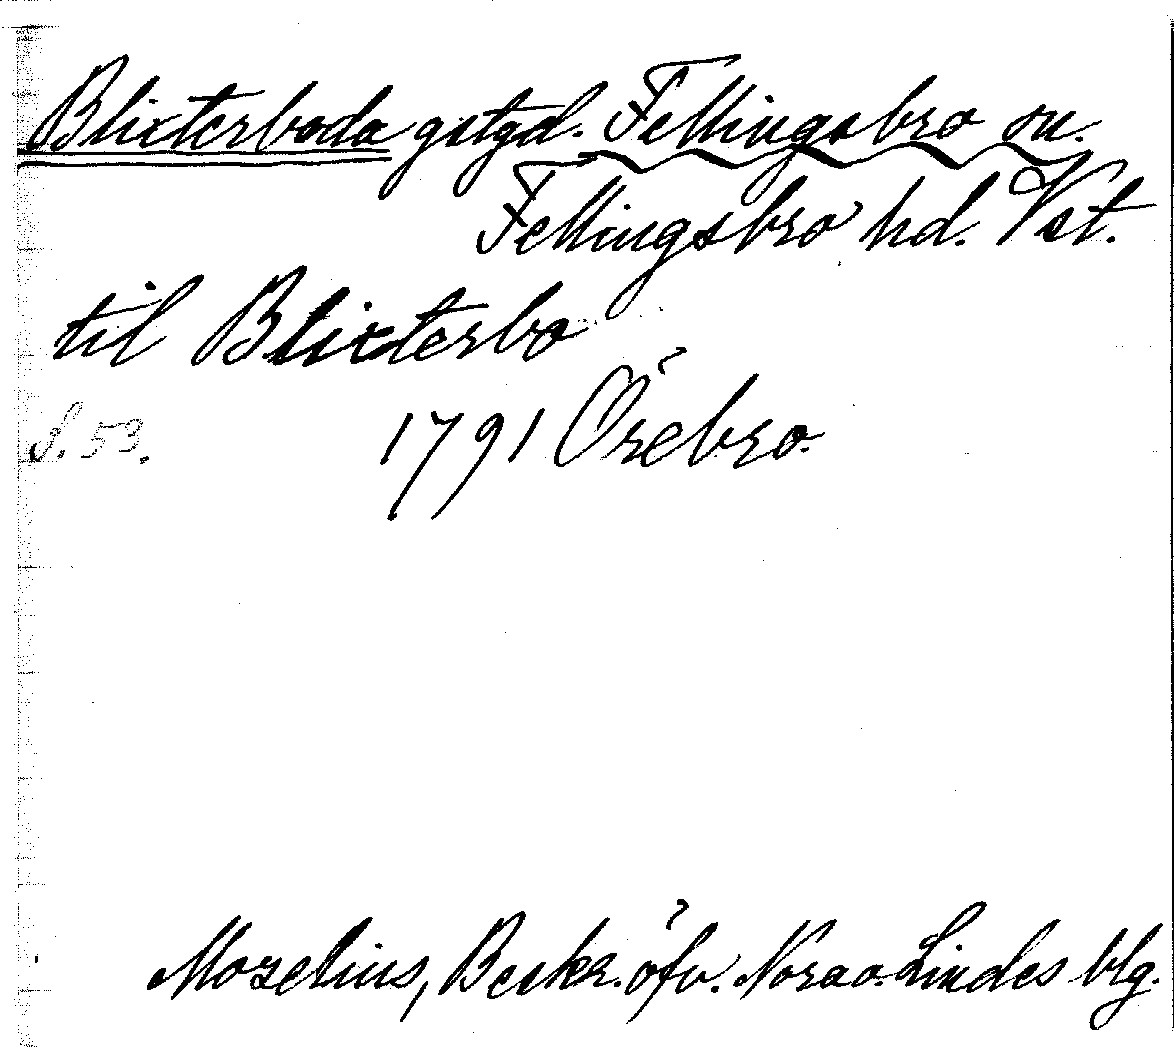 Blixterboda gstgd. Fellingsbro sn.
Fellingsbro hd. Vst.
til Blixterbo
S. 53. 1791 Örebro.
Mozelius, Beskr. öfv. Nora o. Lindes blg.